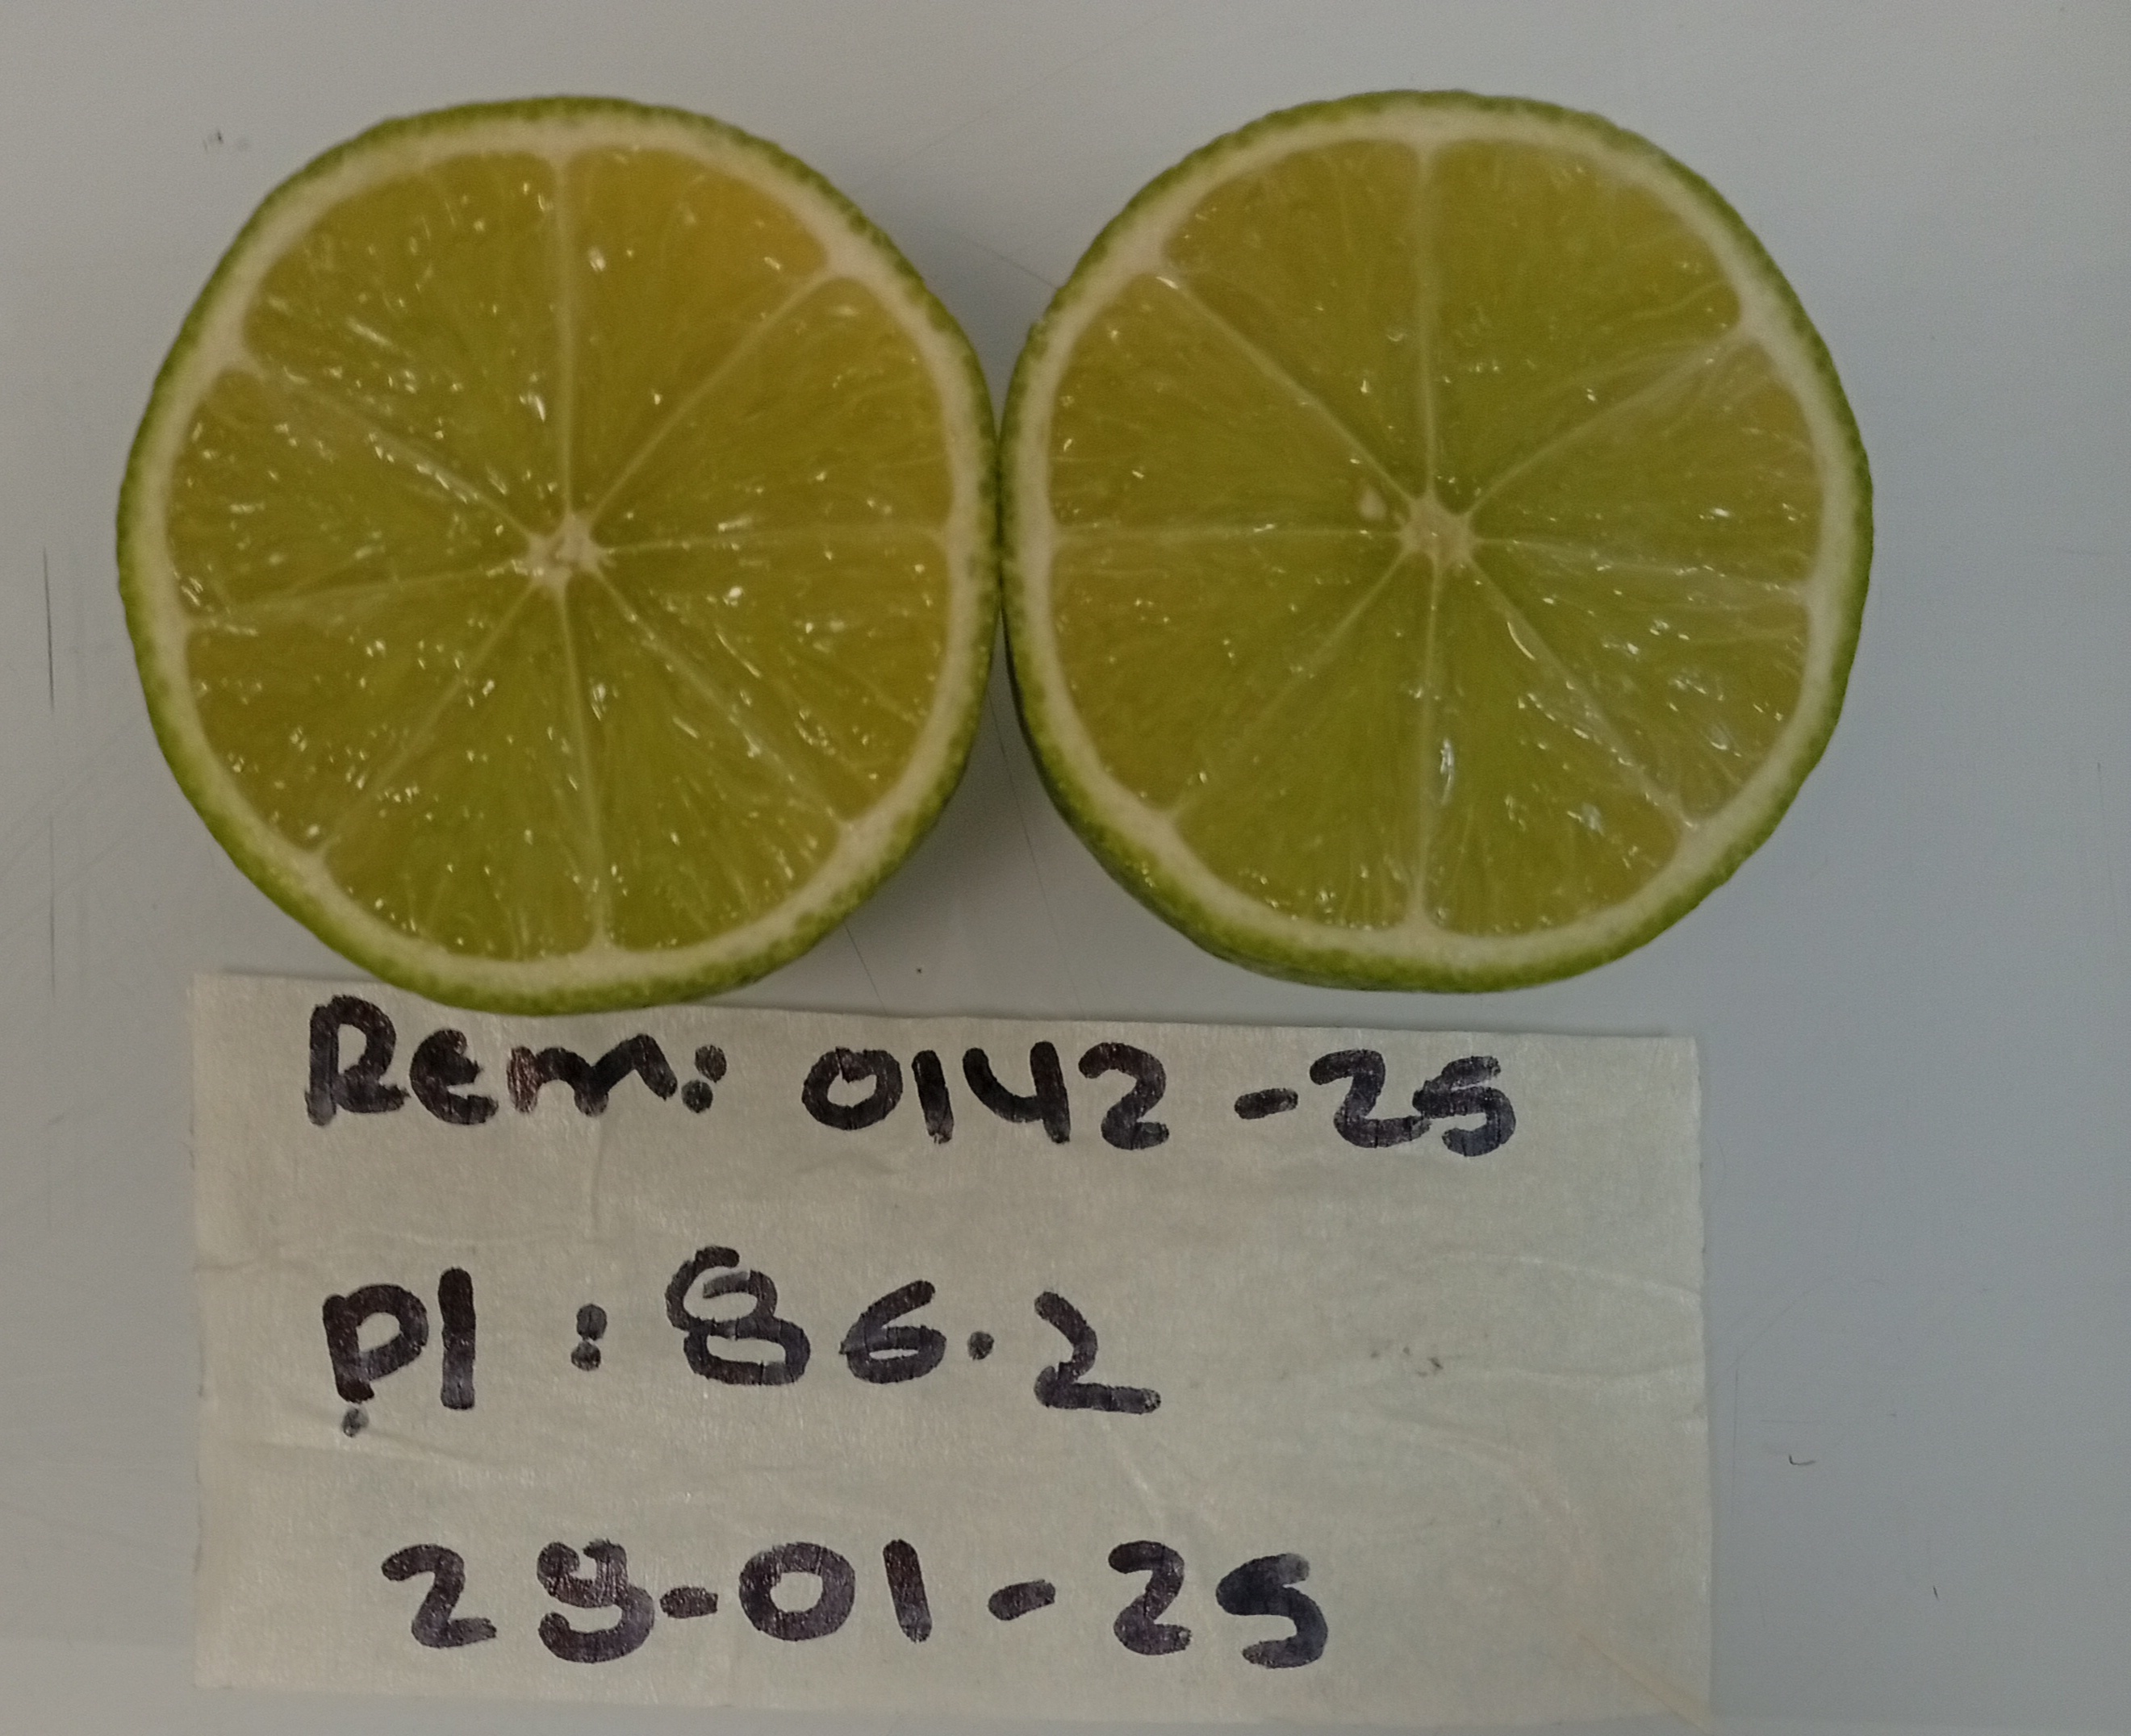 Rem: 0142-25
Pl : 86.2
28-01-25